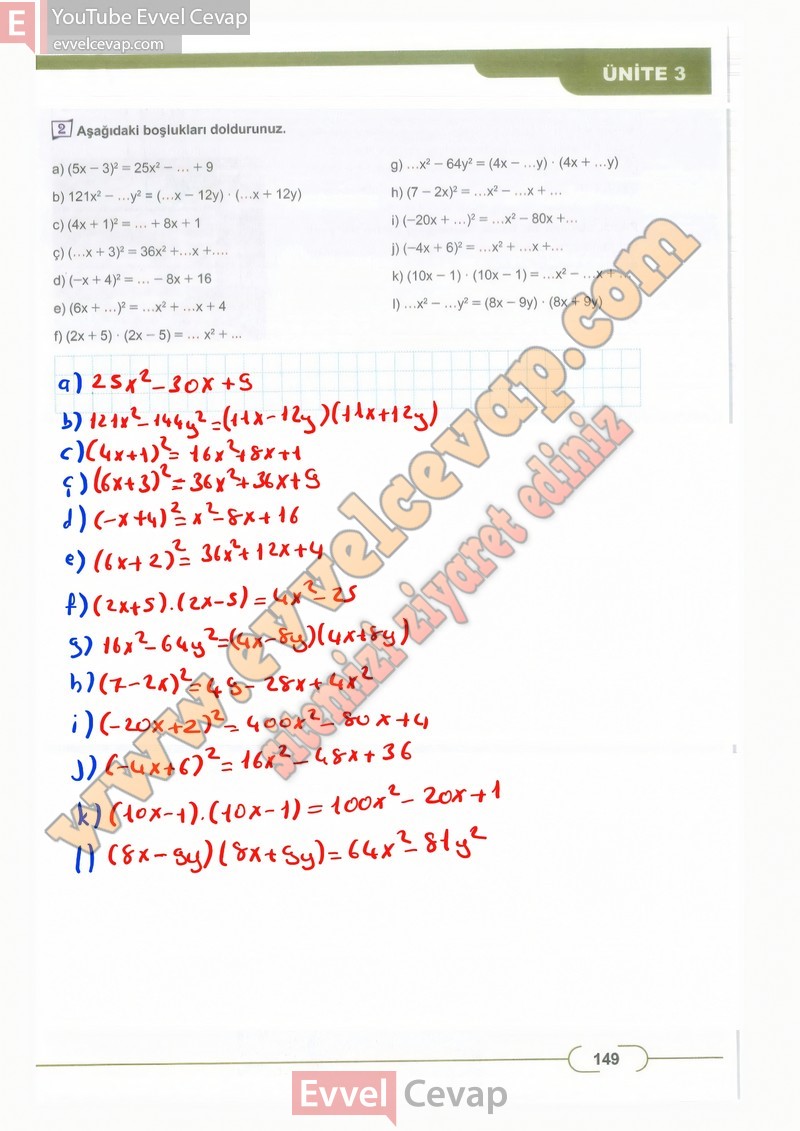 E YouTube Evvel Cevap
evvelcevap.com
ÜNİTE 3
2 Aşağıdaki boşlukları doldurunuz.
a) (5x – 3)² = 25x² – … + 9
b) 121x² – …y² = (…x – 12y) · (…x + 12y)
c) (4x + 1)² = … + 8x + 1
ç) (…x + 3)² = 36x² +…x +….
d) (–x + 4)² = … – 8x + 16
e) (6x + …)² = …x² + …x + 4
f) (2x + 5) · (2x – 5) = … x² + ...
g) …x² – 64y² = (4x – …y) · (4x + …y)
h) (7 – 2x)² = …x² – …x + …
i) (–20x + …)² = …x² – 80x +…
j) (–4x + 6)² = …x² + …x +…
k) (10x – 1) · (10x – 1) = …x² – …x + …
l) …x² – …y² = (8x – 9y) · (8x + 9y)
a) 25x² – 30x + 9
b) 121x² – 144y² = (11x – 12y)(11x + 12y)
c) (4x + 1)² = 16x² + 8x + 1
ç) (6x + 3)² = 36x² + 36x + 9
d) (–x + 4)² = x² – 8x + 16
e) (6x + 2)² = 36x² + 12x + 4
f) (2x + 5).(2x – 5) = 4x² – 25
g) 16x² – 64y² = (4x – 8y)(4x + 8y)
h) (7 – 2x)² = 49 – 28x + 4x²
i) (–20x + 2)² = 400x² – 80x + 4
j) (–4x + 6)² = 16x² – 48x + 36
k) (10x – 1).(10x – 1) = 100x² – 20x + 1
l) (8x – 9y)(8x + 9y) = 64x² – 81y²
www.evvelcevap.com
sitemizi ziyaret ediniz
149
Evvel Cevap